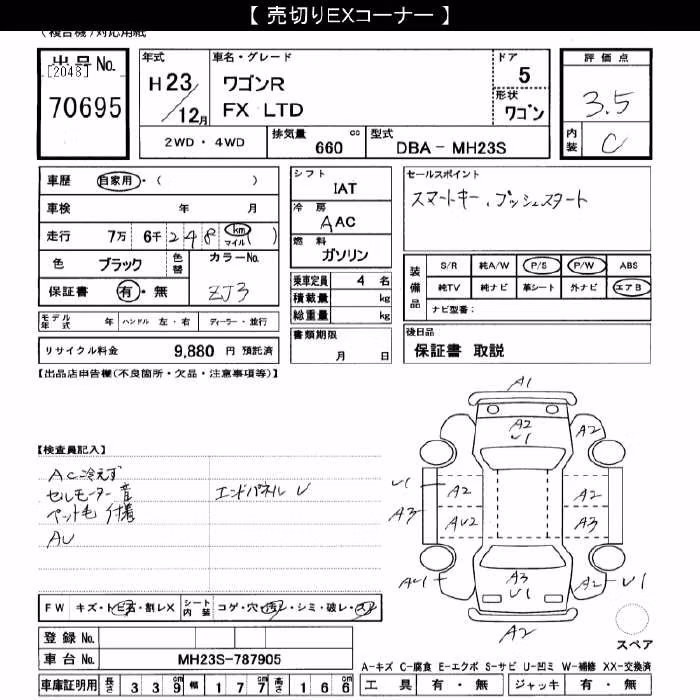 【 売切りEXコーナー 】
(複合機)対応用紙
出品No.
[2048]
70695
年式
H 23/12月
車名・グレード
ワゴンR
FX LTD
ドア
5
形状
ワゴン
2WD・4WD
排気量 660 cc
型式 DBA - MH23S
評価点
3.5
内装 C
車歴 自家用・( )
車検 年 月
走行 7万 6千 2 4 8 km マイル ( )
色 ブラック 色替 カラーNo.
保証書 有・無 ZJ3
モデル年式 年 ハンドル 左・右 ディーラー・並行
リサイクル料金 9,880 円 預託済
シフト
IAT
冷房
AAC
燃料
ガソリン
乗車定員 4 名
積載量 kg
総重量 kg
書類期限
月 日
セールスポイント
スマートキー、プッシュスタート
装備品
S/R 純A/W P/S P/W ABS
純TV 純ナビ 革シート 外ナビ エアB
ナビ型番:
後日品
保証書 取説
【出品店申告欄(不良箇所・欠品・注意事項等)】
【検査員記入】
AC冷えず
セルモーター音 エンドパネル U
ペット毛 付着
AU
A1
A2
U1
A2
U1
A3
A2
A2
AU2
A3
AU1
A3
U1
A2
U1
A2
スペア
FW キズ・トビ石・割レX
シート内装 コゲ・穴・汚レ・シミ・破レ・スレ
登録No.
車台No. MH23S-787905
車庫証明用 長さ 3 3 9 cm 幅 1 7 7 cm 高さ 1 6 6 cm
A-キズ C-腐食 E-エクボ S-サビ U-凹ミ W-補修 XX-交換済
工具 有・無 ジャッキ 有・無